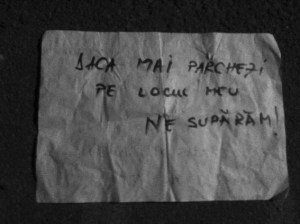 DACA MAI PARCHEZI
PE LOCUL MEU
NE SUPĂRĂM!